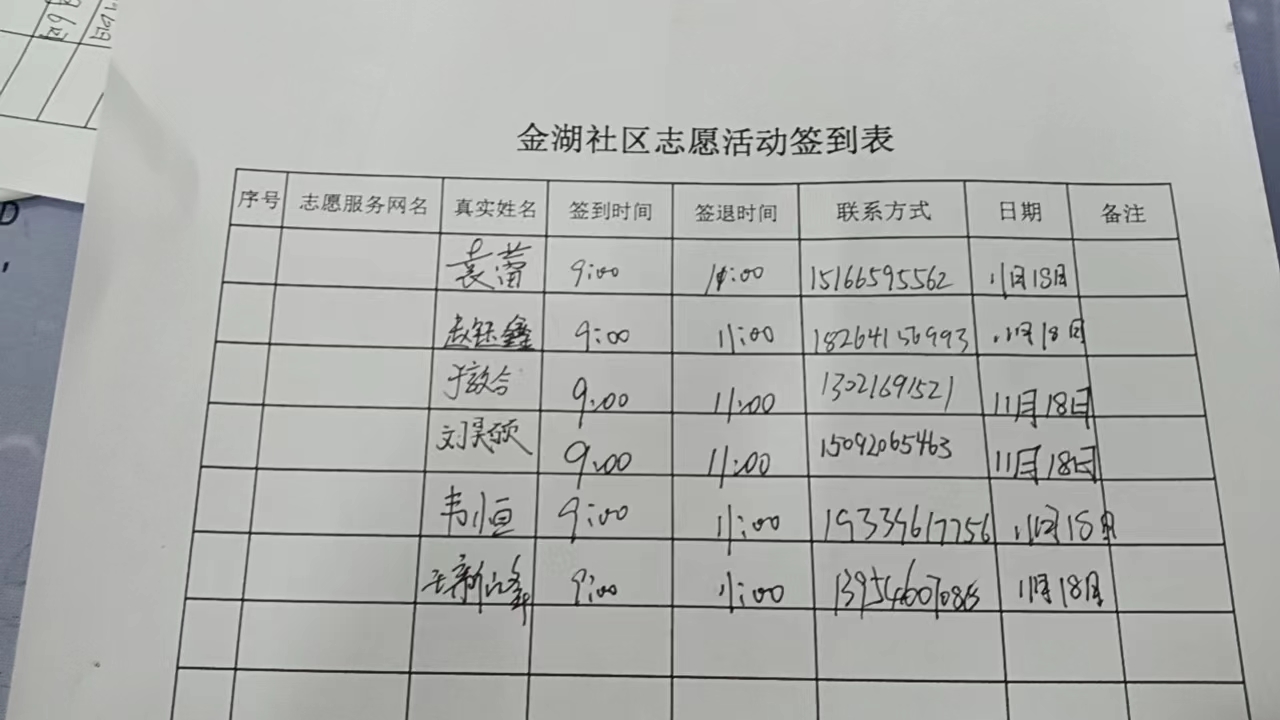 金湖社区志愿活动签到表
序号 志愿服务网名 真实姓名 签到时间 签退时间 联系方式 日期 备注
袁蕾 9:00 11:00 15166595562 11月18日
赵钰鑫 9:00 11:00 18264156993 11月18日
于敬合 9:00 11:00 13021691521 11月18日
刘昊硕 9:00 11:00 15092065463 11月18日
韦恒 9:00 11:00 19339617756 11月18日
王新 9:00 11:00 11月18日